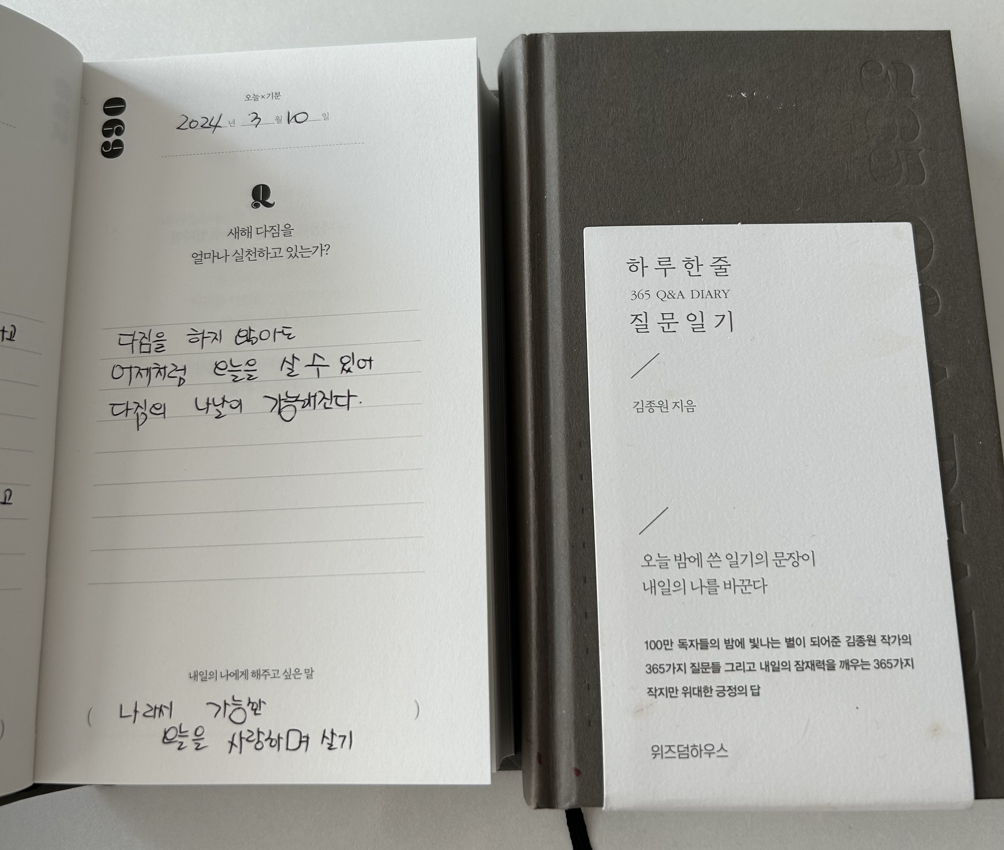 069
오늘×기분
2024년 3월 10일
Q
새해 다짐을
얼마나 실천하고 있는가?
다짐을 하지 않아도
어제처럼 오늘을 살 수 있어
다짐의 나날이 가능해진다.
내일의 나에게 해주고 싶은 말
( 나라서 가능한 )
오늘을 사랑하며 살기
고
하루한줄
365 Q&A DIARY
질문일기
김종원 지음
오늘 밤에 쓴 일기의 문장이
내일의 나를 바꾼다
100만 독자들의 밤에 빛나는 별이 되어준 김종원 작가의
365가지 질문들 그리고 내일의 잠재력을 깨우는 365가지
작지만 위대한 긍정의 답
위즈덤하우스
365